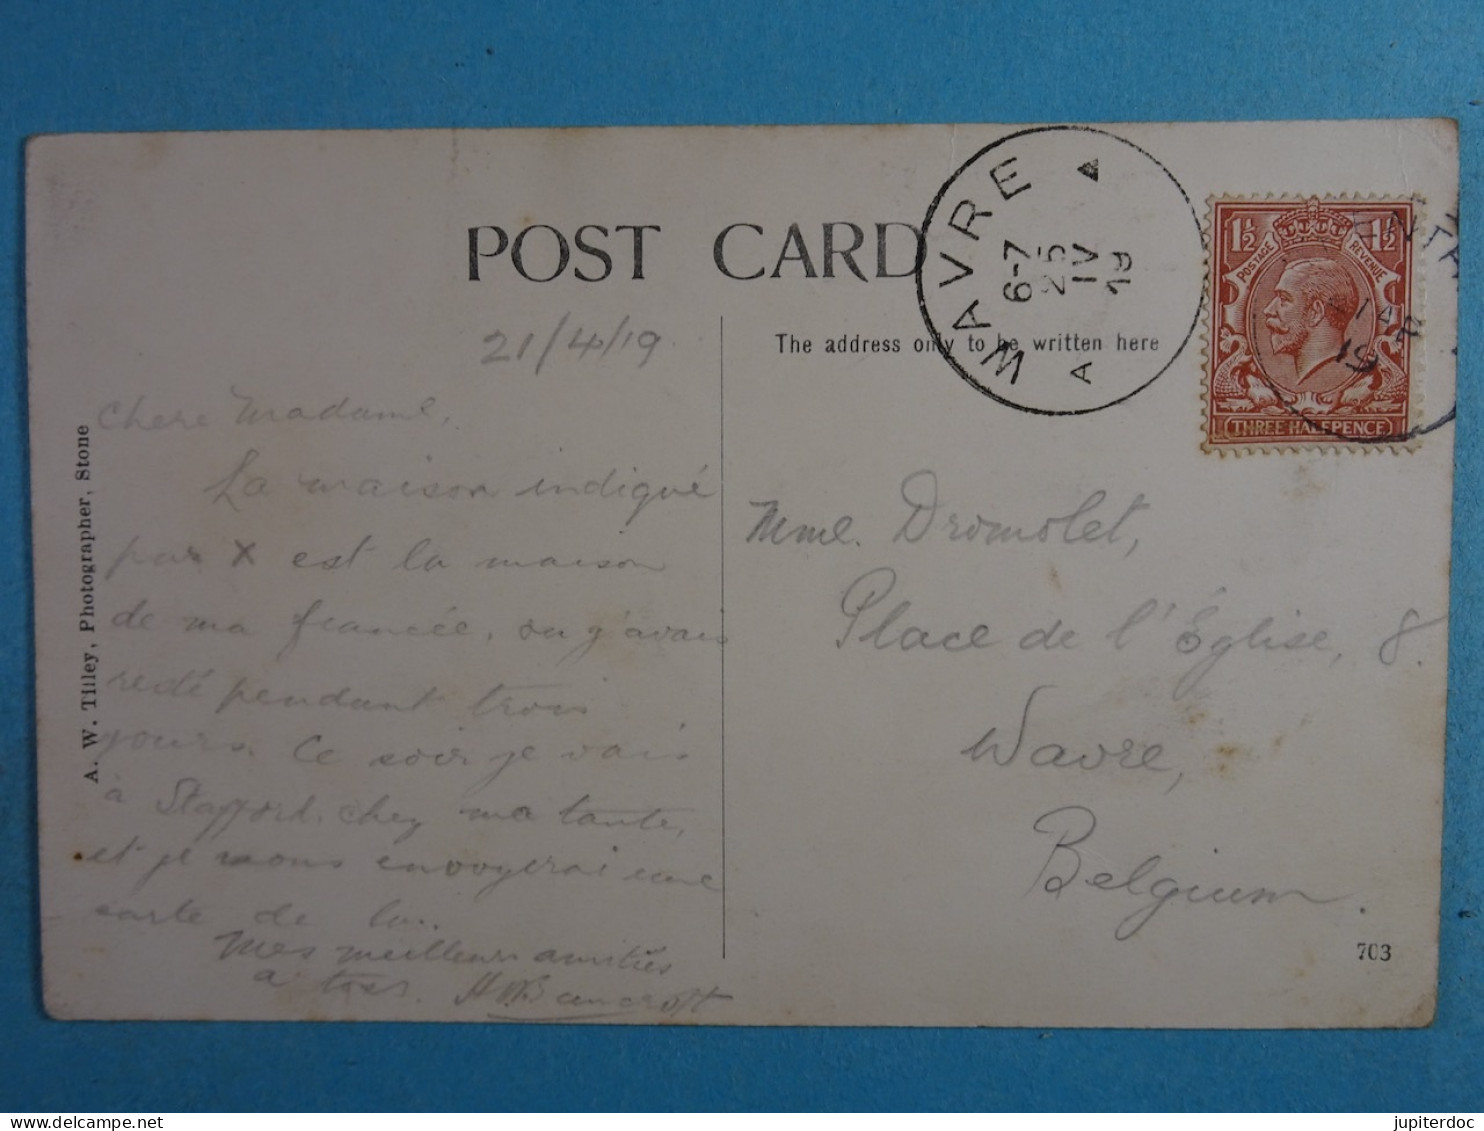 POST CARD
21/4/19
The address only to be written here
WAVRE
6-7
25
IV
19
A
1½ 1½
POSTAGE REVENUE
THREE HALFPENCE
21 AP
19
Chere Madame,
La maison indiqué
par X est la maison
de ma fiancée, ou j'avais
resté pendant trois
jours. Ce soir je vais
à Stafford chez ma tante,
et je vous envoyerai une
carte de la.
Mes meilleurs amitiés
à tous. H W Bancroft
Mme. Dromolet,
Place de l'Église, 8.
Wavre,
Belgium.
703
A. W. Tilley, Photographer, Stone
delcampe.net
jupiterdoc